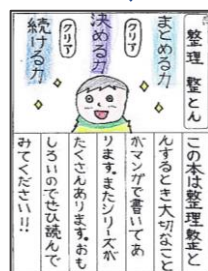 整理 整とん
まとめる力
クリア
決める力
クリア
続ける力
この本は整理整と
んするとき大切なこと
がマンガで書いてあ
ります。またシリーズが
たくさんあります。おも
しろいのでぜひ読んで
みてください!!